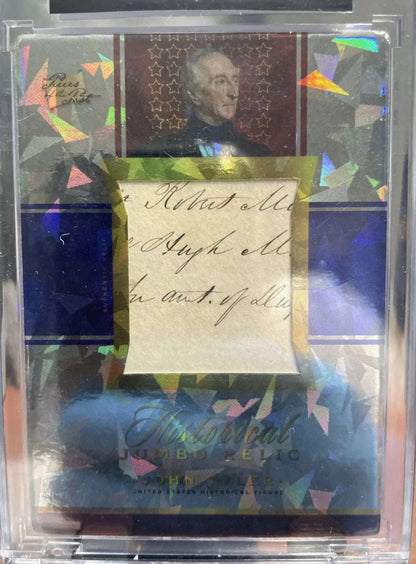 Pieces
of the Past
Robert M
Hugh M
ant. of
AUTHENTIC RELIC
Historical
JUMBO RELIC
JOHN TYLER
UNITED STATES HISTORICAL FIGURE